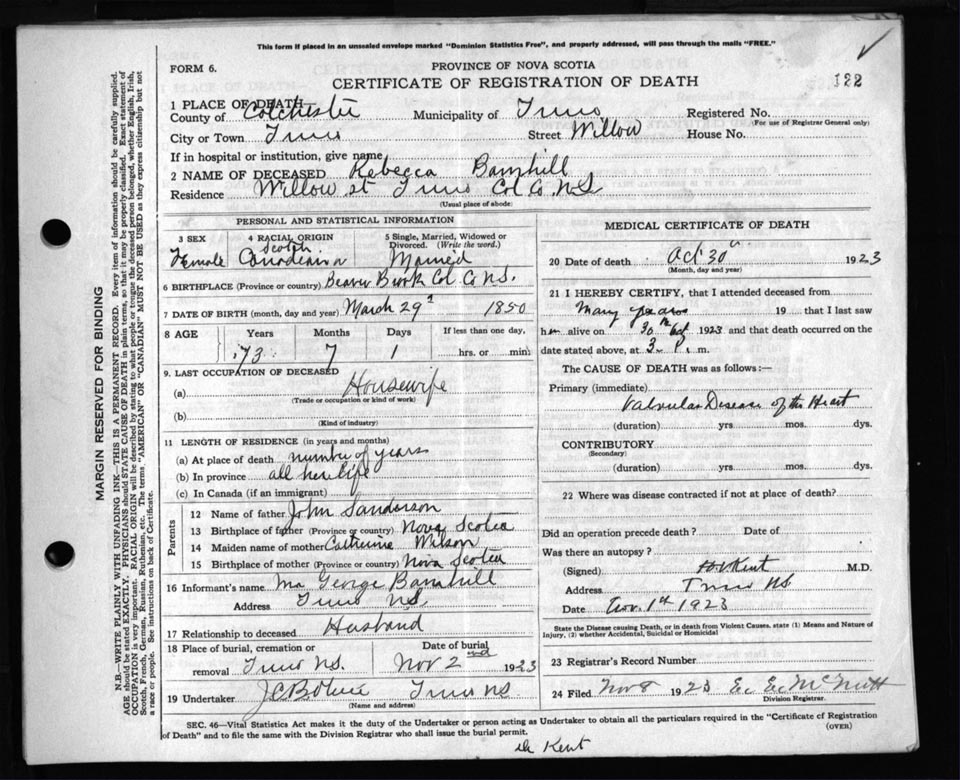 This form if placed in an unsealed envelope marked "Dominion Statistics Free", and properly addressed, will pass through the mails "FREE."
FORM 6.
PROVINCE OF NOVA SCOTIA
CERTIFICATE OF REGISTRATION OF DEATH
122
1 PLACE OF DEATH
County of Colchester Municipality of Truro Registered No.
(For use of Registrar General only)
City or Town Truro Street Willow House No.
If in hospital or institution, give name
2 NAME OF DECEASED Rebecca Barnhill
Residence Willow st Truro Col Co NS
(Usual place of abode)
PERSONAL AND STATISTICAL INFORMATION
3 SEX
Female
4 RACIAL ORIGIN
Scotch
Canadian
5 Single, Married, Widowed or Divorced. (Write the word.)
Married
6 BIRTHPLACE (Province or country) Beaver Brook Col Co NS.
7 DATE OF BIRTH (month, day and year) March 29 1850
8 AGE
Years Months Days If less than one day,
73 7 1 hrs. or min.
9. LAST OCCUPATION OF DECEASED
(a) Housewife
(Trade or occupation or kind of work)
(b)
(Kind of industry)
11 LENGTH OF RESIDENCE (in years and months)
(a) At place of death number of years
(b) In province all her life
(c) In Canada (if an immigrant)
Parents
12 Name of father John Sanderson
13 Birthplace of father (Province or country) Nova Scotia
14 Maiden name of mother Catherine Wilson
15 Birthplace of mother (Province or country) Nova Scotia
16 Informant's name Mr George Barnhill
Address Truro NS
17 Relationship to deceased Husband
18 Place of burial, cremation or removal Truro NS.
Date of burial
Nov 2 nd 1923
19 Undertaker Truro NS
(Name and address)
MEDICAL CERTIFICATE OF DEATH
20 Date of death Oct 30 1923
(Month, day and year)
21 I HEREBY CERTIFY, that I attended deceased from
Many years 19 that I last saw
h alive on 30th Oct 1923 and that death occurred on
date stated above, at 3 P. m.
The CAUSE OF DEATH was as follows:—
Primary (immediate)
Valvular Disease of the Heart
(duration) yrs. mos. dys.
CONTRIBUTORY
(Secondary)
(duration) yrs. mos. dys.
22 Where was disease contracted if not at place of death?
Did an operation precede death? Date of
Was there an autopsy?
(Signed) Kent M.D.
Address Truro NS
Date Nov. 1st 1923
State the Disease causing Death, or in death from Violent Causes, state (1) Means and Nature of Injury, (2) whether Accidental, Suicidal or Homicidal
23 Registrar's Record Number
24 Filed Nov 8 1923 E. E. McNutt
Division Registrar.
SEC. 46—Vital Statistics Act makes it the duty of the Undertaker or person acting as Undertaker to obtain all the particulars required in the "Certificate of Registration of Death" and to file the same with the Division Registrar who shall issue the burial permit.
(OVER)
Dr Kent
MARGIN RESERVED FOR BINDING
N.B.—WRITE PLAINLY WITH UNFADING INK—THIS IS A PERMANENT RECORD. Every item of information should be carefully supplied.
AGE should be stated EXACTLY. PHYSICIANS should STATE CAUSE OF DEATH in plain terms, so that it may be properly classified. Exact statement of
OCCUPATION is very important. RACIAL ORIGIN will be described by stating to what people or tongue the deceased person belonged, whether English, Irish,
Scotch, French, German, Russian, Ruthenian, etc. The terms "AMERICAN" OR "CANADIAN" MUST NOT BE USED as they express citizenship but not
a race or people. See instructions on back of Certificate.